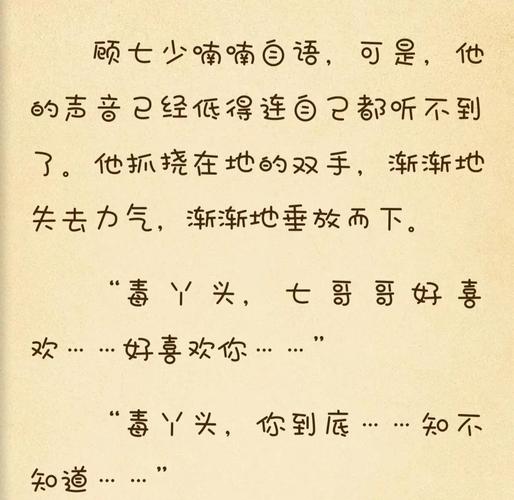 顾七少喃喃自语，可是，他
的声音已经低得连自己都听不到
了。他抓挠在地的双手，渐渐地
失去力气，渐渐地垂放而下。
“毒丫头，七哥哥好喜
欢……好喜欢你……”
“毒丫头，你到底……知不
知道……”